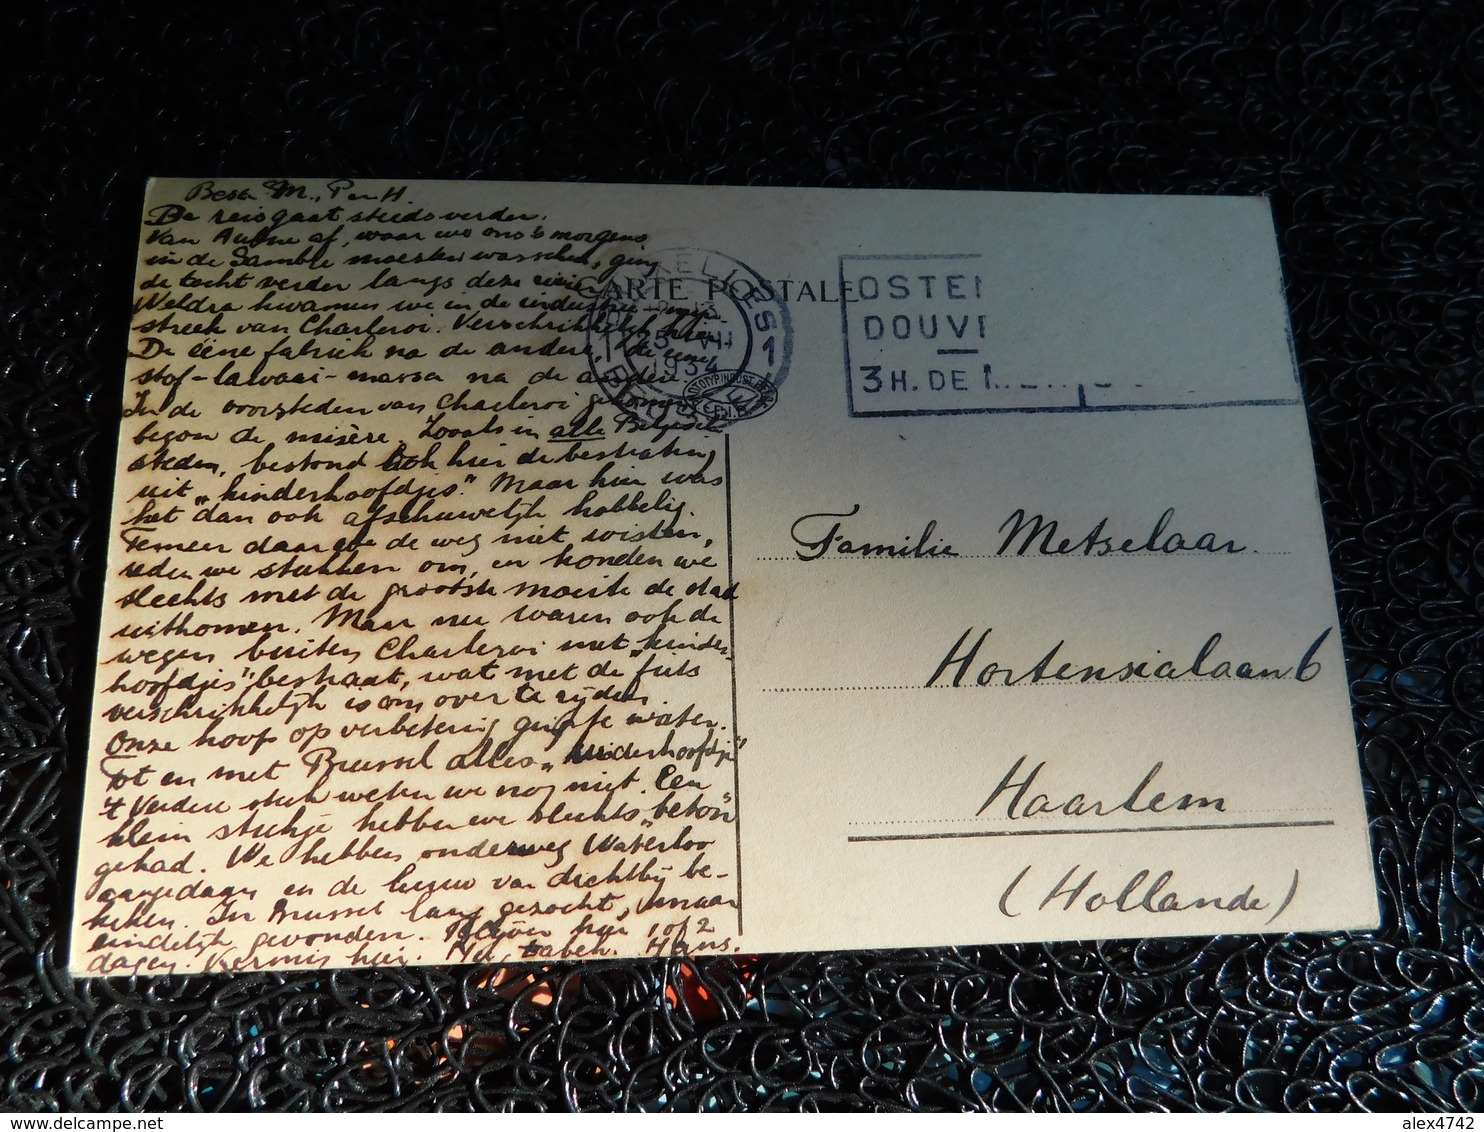 Beste M., P en H.
De reis gaat steeds verder.
Van Aulne af, waar we ons 's morgens
in de Sambre moesten wasschen, ging
de tocht verder langs deze rivier.
Weldra kwamen we in de industrie-
streek van Charleroi. Verschrikkelijk
De eene fabriek na de andere, de eene
stof-lawaai-massa na de andere.
In de voorsteden van Charleroi gekomen
begon de misère. Zooals in alle Belgische
steden, bestond ook hier de bestrating
uit „kinderhoofdjes." Maar hier was
het dan ook afschuwelijk hobbelig.
Temeer daar we de weg niet wisten,
reden we stukken om, en konden we
slechts met de grootste moeite de stad
uitkomen. Maar nu waren ook de
wegen buiten Charleroi met „kinder-
hoofdjes" bestraat, wat met de fiets
verschrikkelijk is om over te rijden.
Onze hoop op verbetering ging te water.
Tot en met Brussel alles „kinderhoofdjes"
't Verdere stuk weten we nog niet. Een
klein stukje hebben we slechts „beton"
gehad. We hebben onderweg Waterloo
aangedaan en de leeuw van dichtbij be-
keken. In Brussel lang gezocht, maar
eindelijk gevonden. Blijven hier 1 of 2
dagen. Kermis hier. Hans.
CARTE POSTALE
1934
1
OSTEN
DOUV
3 H. DE
Familie Metselaar.
Hortensialaan 6
Haarlem
(Hollande)
alex4742